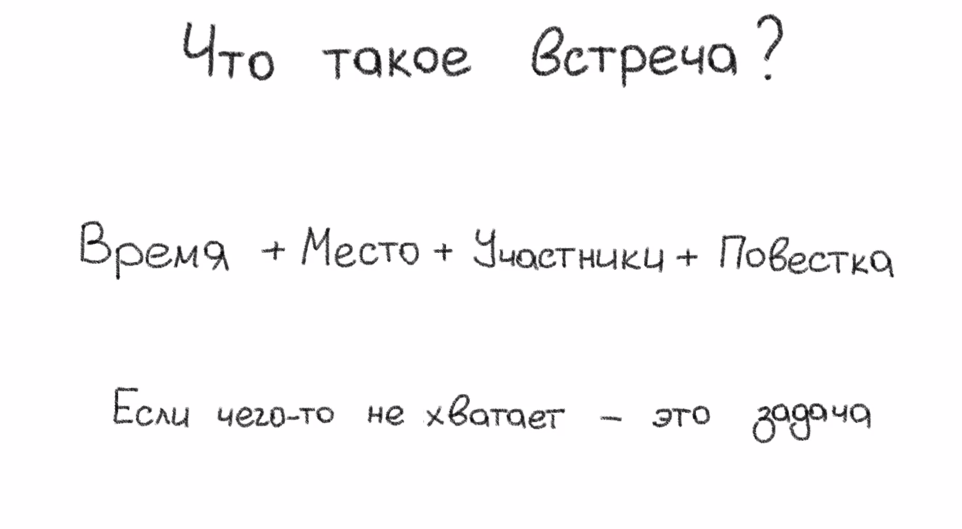 Что такое встреча?
Время + Место + Участники + Повестка
Если чего-то не хватает - это задача